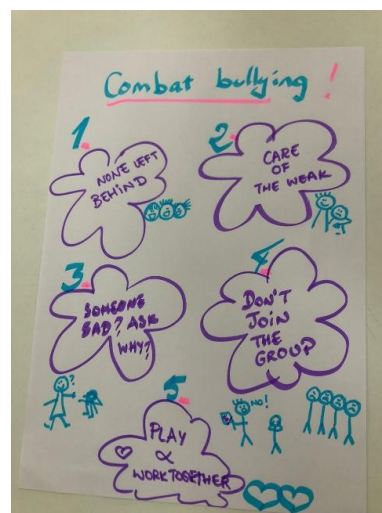 Combat bullying!
1.
NONE LEFT
BEHIND
2.
CARE
OF
THE WEAK
3.
SOMEONE
SAD? ASK
WHY?
4.
DON'T
JOIN
THE
GROUP
?
NO!
5.
PLAY
&
WORK TOGETHER